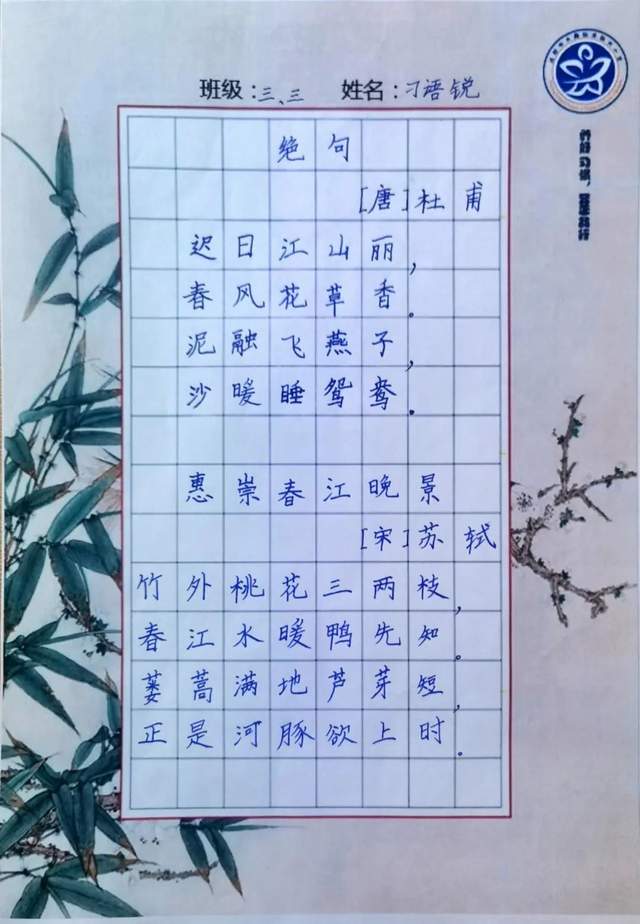 班级：三、三 姓名：刁语锐
绝句
[唐]杜甫
迟日江山丽，
春风花草香。
泥融飞燕子，
沙暖睡鸳鸯。
惠崇春江晚景
[宋]苏轼
竹外桃花三两枝，
春江水暖鸭先知。
蒌蒿满地芦芽短，
正是河豚欲上时。